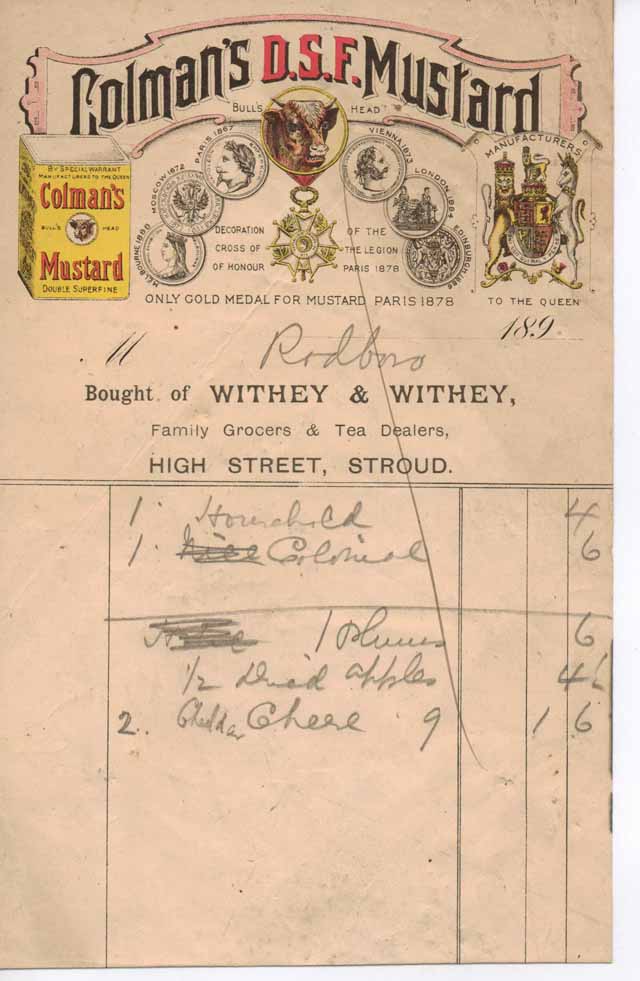 Colman's D.S.F. Mustard
BULL'S HEAD
MANUFACTURERS
MELBOURNE 1880
MOSCOW 1872
PARIS 1867
VIENNA 1873
LONDON 1884
EDINBURGH 1886
BY SPECIAL WARRANT
MANUFACTURERS TO THE QUEEN
Colman's
BULL'S HEAD
Mustard
DOUBLE SUPERFINE
DECORATION OF THE
CROSS OF THE LEGION
OF HONOUR PARIS 1878
ONLY GOLD MEDAL FOR MUSTARD PARIS 1878
TO THE QUEEN
189
M Rodboro
Bought of WITHEY & WITHEY,
Family Grocers & Tea Dealers,
HIGH STREET, STROUD.
1 Household 4
1 Colonial 6
1 Plums 6
1/2 Dried apples 4
2 Cheddar Cheese 9 1 6